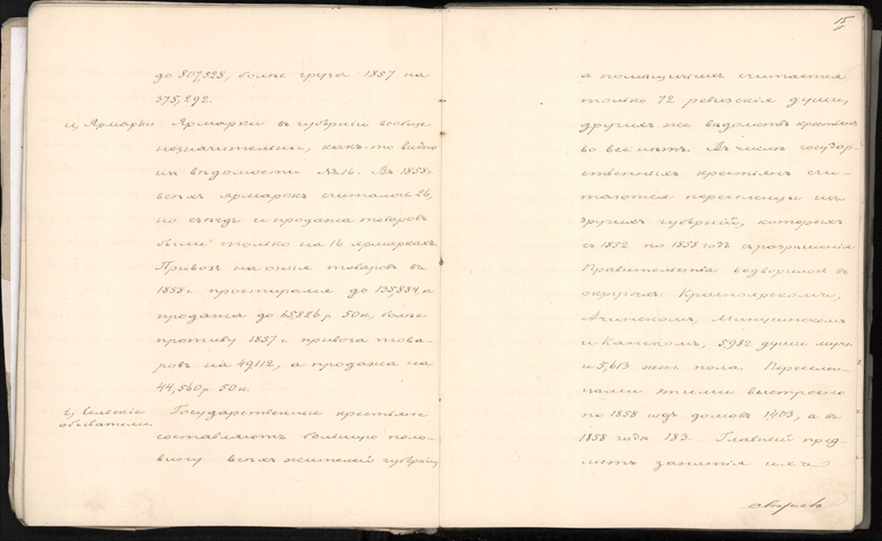 до 807,528, болѣе груза 1857 на
375,292.
и, Ярмарки
Ярмарки въ губерніи вообще
незначительны, какъ-то видно
изъ вѣдомости № 16. Въ 1858 г.
всѣхъ ярмарокъ считалось 26,
но съѣздъ и продажа товаровъ
были только на 16 ярмаркахъ.
Привозъ на оныя товаровъ въ
1858 г. простирался до 135,884, а
продажа до 65826 р. 50 к, болѣе
противу 1857 г. привоза това-
ровъ на 49,112, а продажа на
44,560 р. 50 к.
і, Сельскіе
обыватели.
Государственные крестьяне
составляютъ большую поло-
вину всѣхъ жителей губерніи,
15
а помѣщичьихъ считается
только 72 ревизскія души,
другихъ же вѣдомствъ крестьянъ
во все нѣтъ. Въ числѣ государ-
ственныхъ крестьянъ счи-
таются переселенцы изъ
другихъ губерній, которыхъ
съ 1852 по 1858 годъ съ разрѣшенія
Правительства водворилось въ
округахъ: Красноярскомъ,
Ачинскомъ, Минусинскомъ
и Канскомъ, 5,982 души муж.
и 5,613 жен. пола. Переселен-
цами этими выстроено
по 1858 годъ домовъ 1403, а въ
1858 годѣ 183. Главный пред-
метъ занятія ихъ